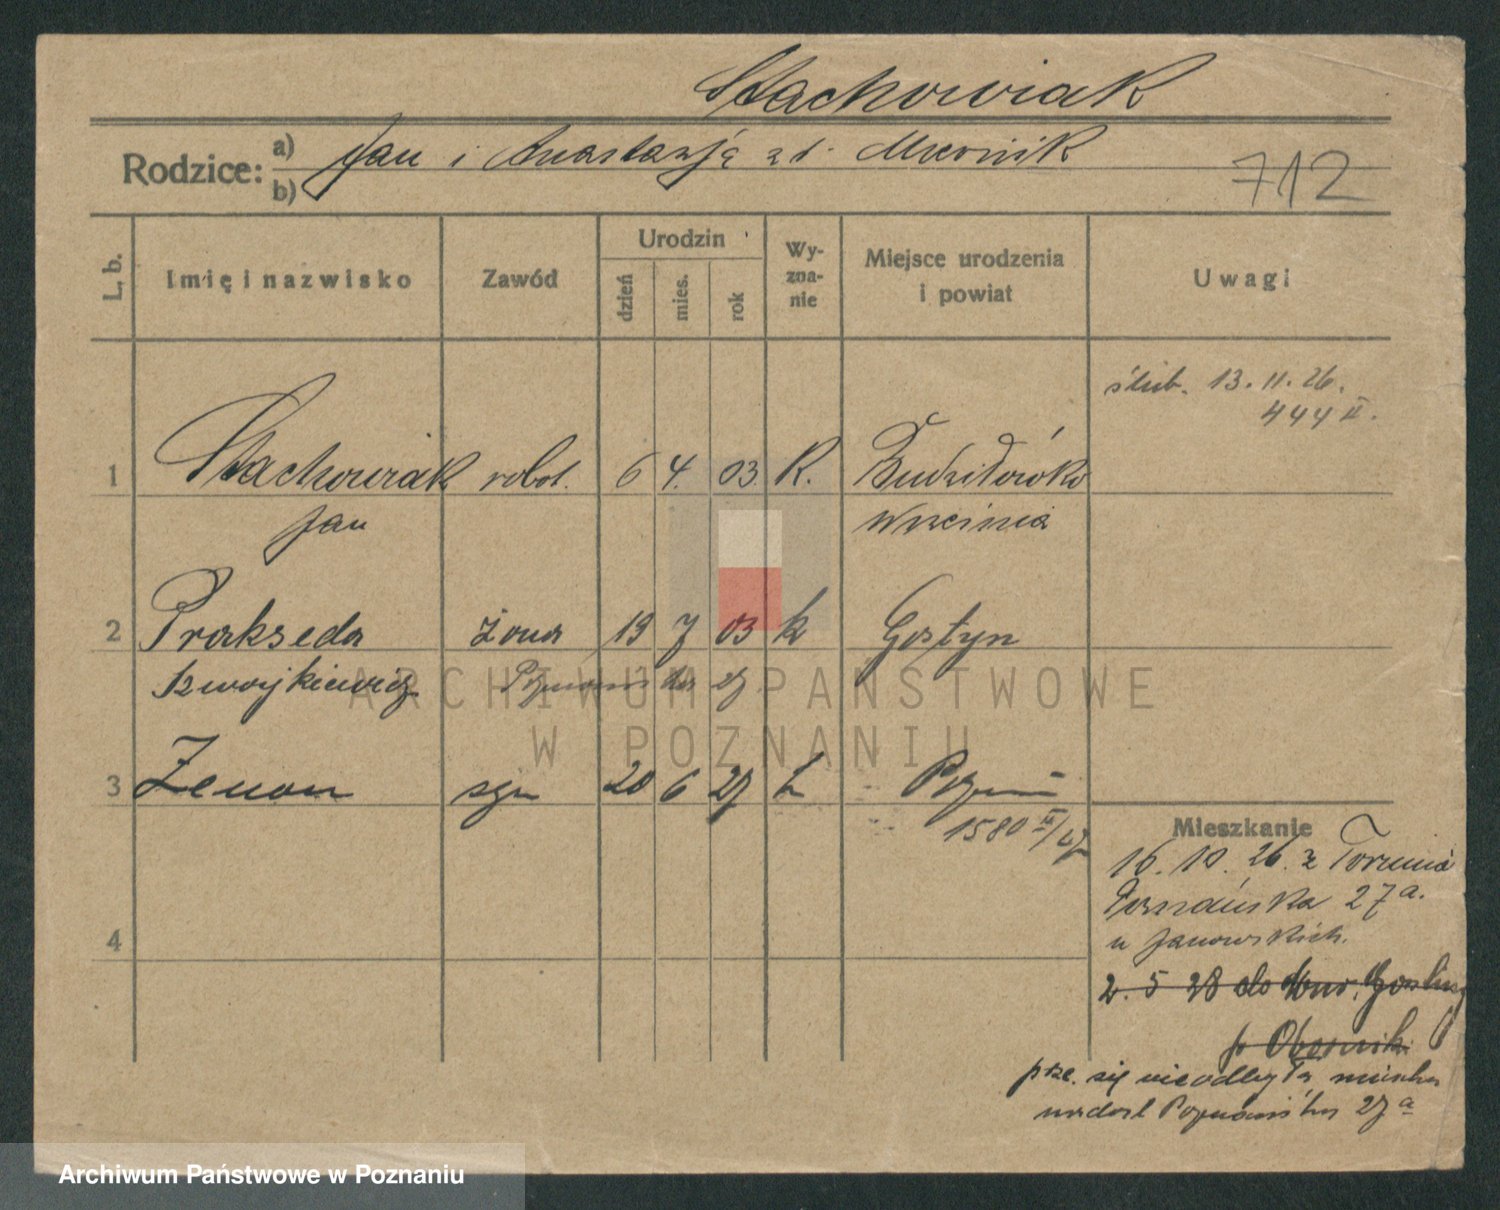 Stachowiak
Rodzice: a) Jan i Anastazja zd. Miernik
b)
712
L. b.
Imię i nazwisko
Zawód
Urodzin
dzień
mies.
rok
Wy-
zna-
nie
Miejsce urodzenia
i powiat
Uwagi
ślub. 13.11.26.
444 II.
1 Stachowiak robot. 6 4. 03. R. Budziłówko
Jan Września
2 Prakseda żona 19 7 03 k Gostyn
Szwojkiewicz Poznańska 27
3 Zenon syn 20 6 27 k Pozn
1580 II/27
Mieszkanie
16.10.26. z Torunia
Poznańska 27a.
u Janowskich.
4
2. 5 28 do
p Obornik.
prze. się nie odbyła, mieszka
nadal Poznańska 27a
ARCHIWUM PAŃSTWOWE
W POZNANIU
Archiwum Państwowe w Poznaniu